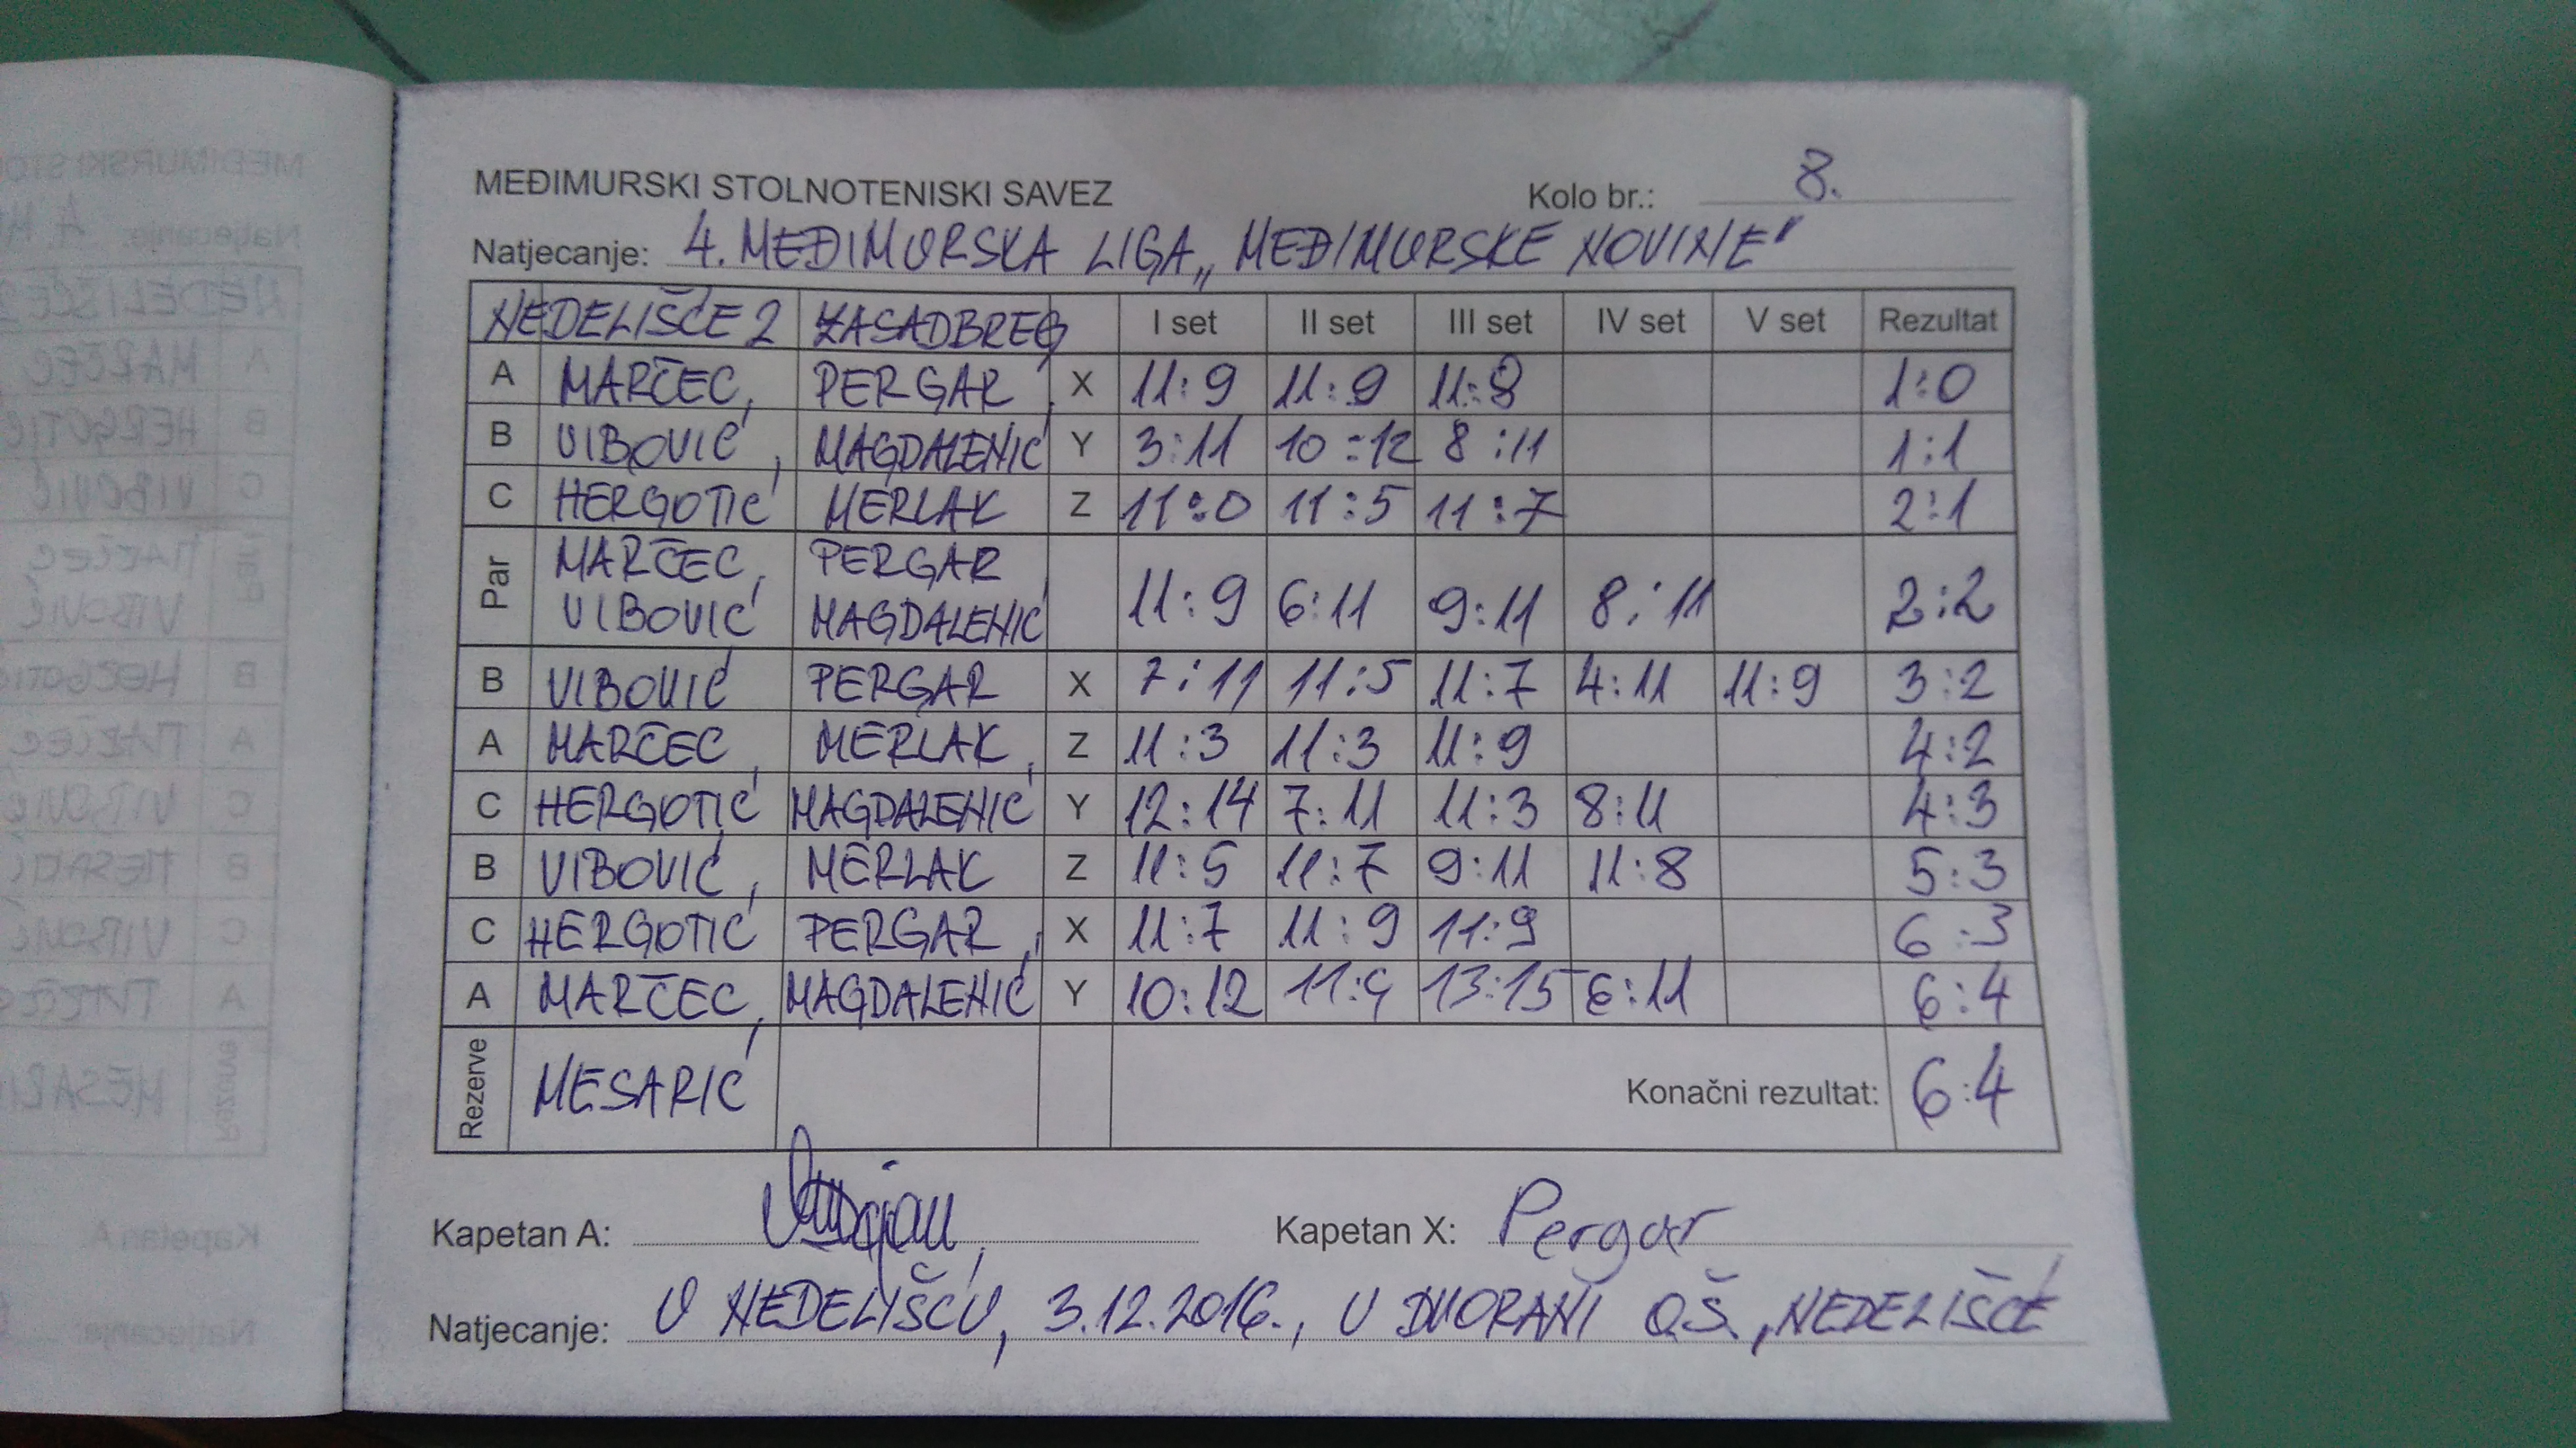 MEĐIMURSKI STOLNOTENISKI SAVEZ Kolo br.: 8.
Natjecanje: 4. MEĐIMURSKA LIGA „MEĐIMURSKE NOVINE"
NEDELIŠĆE 2 ZASADBREG I set II set III set IV set V set Rezultat
A MARČEC PERGAR X 11:9 11:9 11:8 1:0
B VIBOVIĆ MAGDALENIĆ Y 3:11 10:12 8:11 1:1
C HERGOTIĆ MERLAK Z 11:0 11:5 11:7 2:1
Par MARČEC, PERGAR
VIBOVIĆ MAGDALENIĆ 11:9 6:11 9:11 8:11 2:2
B VIBOVIĆ PERGAR X 7:11 11:5 11:7 4:11 11:9 3:2
A MARČEC MERLAK Z 11:3 11:3 11:9 4:2
C HERGOTIĆ MAGDALENIĆ Y 12:14 7:11 11:3 8:11 4:3
B VIBOVIĆ MERLAK Z 11:5 11:7 9:11 11:8 5:3
C HERGOTIĆ PERGAR X 11:7 11:9 11:9 6:3
A MARČEC MAGDALENIĆ Y 10:12 11:9 13:15 6:11 6:4
Rezerve MESARIĆ Konačni rezultat: 6:4
Kapetan A: Kapetan X: Pergar
Natjecanje: U NEDELIŠĆU, 3.12.2016., U DVORANI O.Š. NEDELIŠĆE